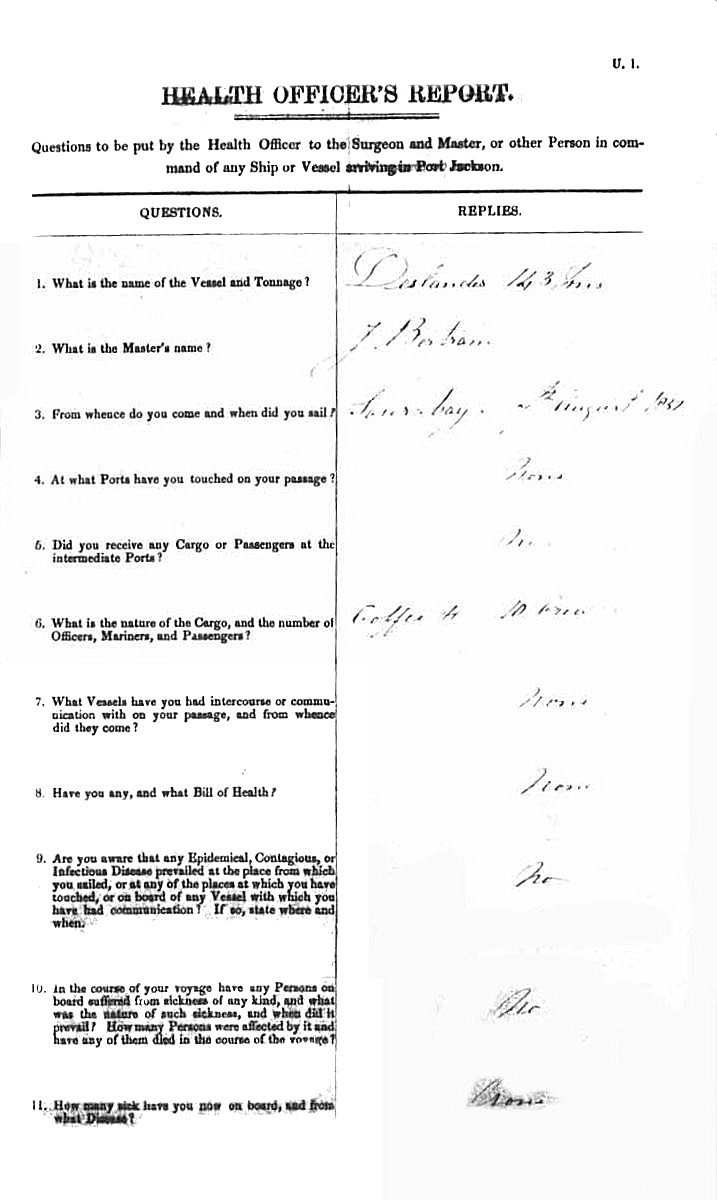 U. 1.
HEALTH OFFICER'S REPORT.
Questions to be put by the Health Officer to the Surgeon and Master, or other Person in com-
mand of any Ship or Vessel arriving in Port Jackson.
QUESTIONS.
REPLIES.
1. What is the name of the Vessel and Tonnage?
Deslandes 143 Tns
2. What is the Master's name?
J. Bertram
3. From whence do you come and when did you sail?
bay. August
4. At what Ports have you touched on your passage?
None
5. Did you receive any Cargo or Passengers at the
intermediate Ports?
No
6. What is the nature of the Cargo, and the number of
Officers, Mariners, and Passengers?
Coffee & 10 Crew
7. What Vessels have you had intercourse or commu-
nication with on your passage, and from whence
did they come?
None
8. Have you any, and what Bill of Health?
None
9. Are you aware that any Epidemical, Contagious, or
Infectious Disease prevailed at the place from which
you sailed, or at any of the places at which you have
touched, or on board of any Vessel with which you
have had communication? If so, state where and
when.
No
10. In the course of your voyage have any Persons on
board suffered from sickness of any kind, and what
was the nature of such sickness, and when did it
prevail? How many Persons were affected by it and
have any of them died in the course of the voyage?
No
11. How many sick have you now on board, and from
what Disease?
None